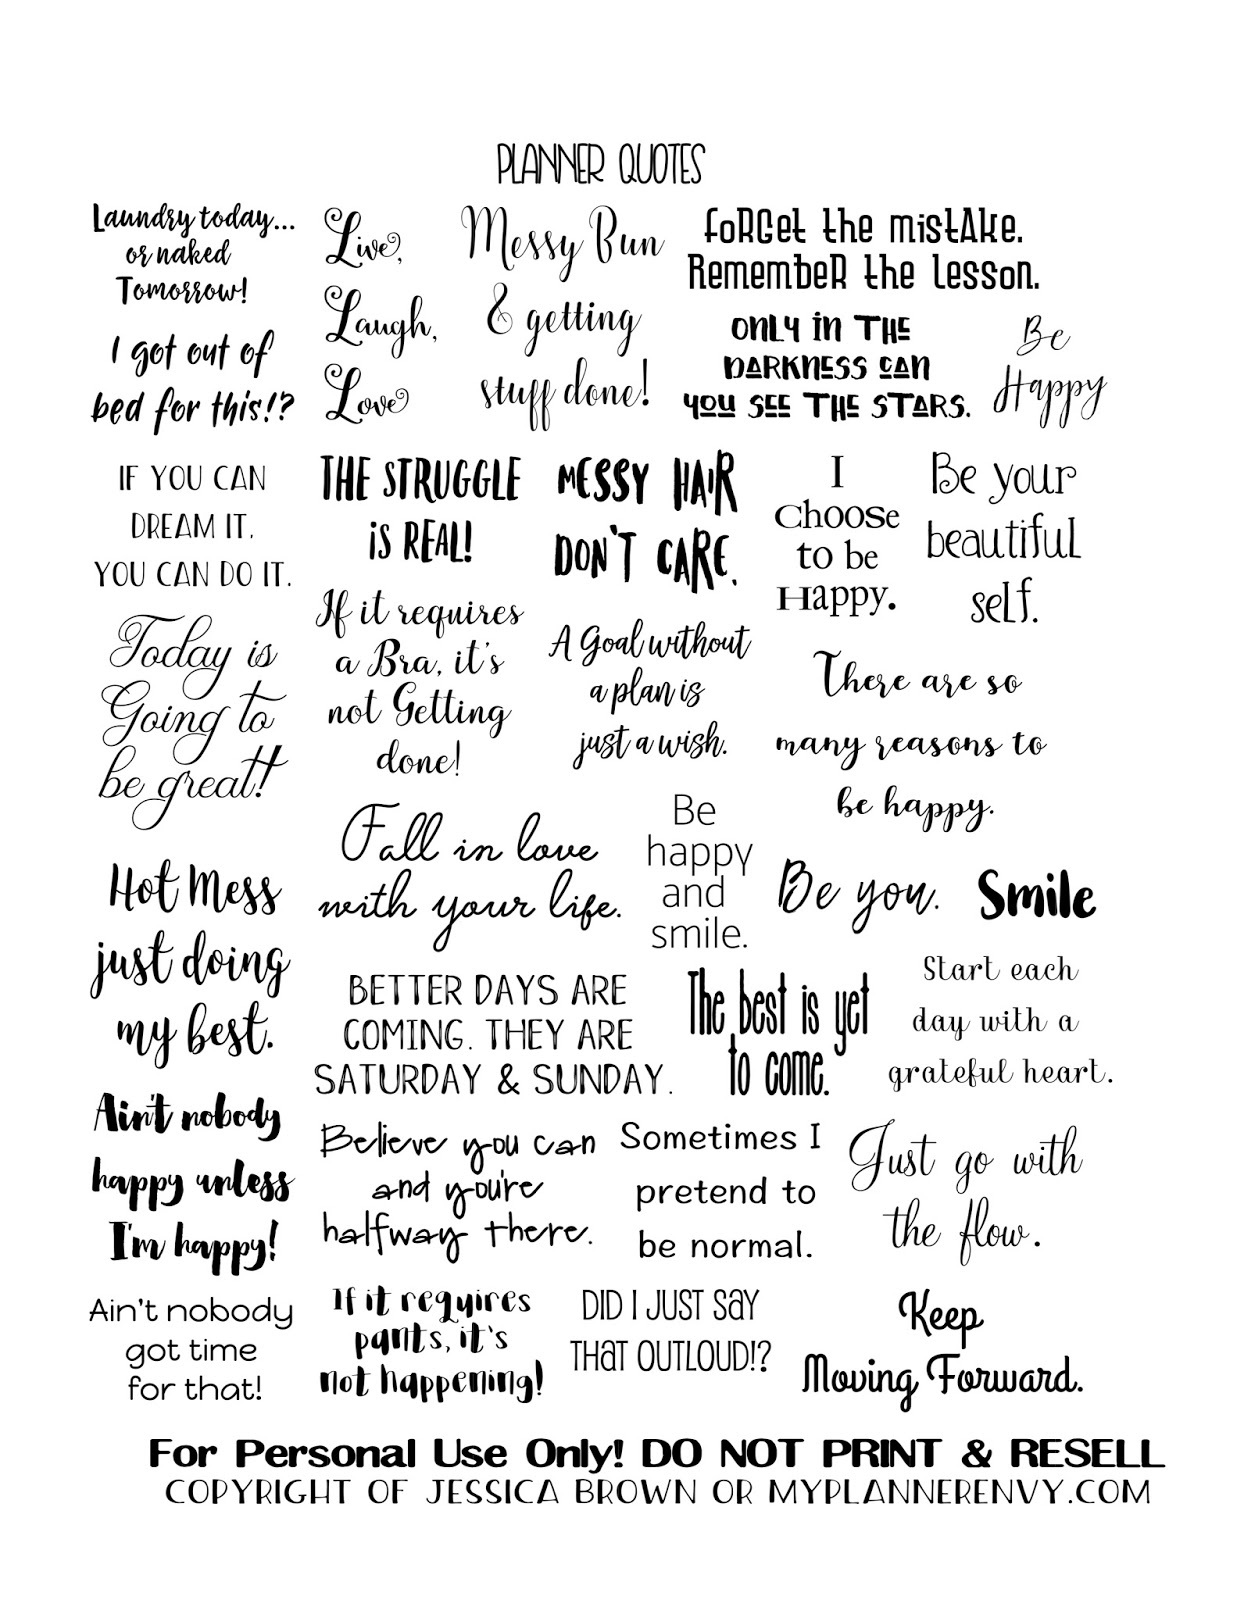 PLANNER QUOTES
Laundry today...
or naked
Tomorrow!
Live,
Laugh,
Love
Messy Bun
& getting
stuff done!
forget the mistake.
Remember the lesson.
I got out of
bed for this!?
only in the
darkness can
you see the stars.
Be
Happy
IF YOU CAN
DREAM IT,
YOU CAN DO IT.
THE STRUGGLE
iS REAL!
MESSY HAIR
DON'T CARE.
I
Choose
to be
Happy.
Be your
beautiful
self.
Today is
Going to
be great!
If it requires
a Bra, it's
not Getting
done!
A Goal without
a plan is
just a wish.
There are so
many reasons to
be happy.
Hot Mess
just doing
my best.
Fall in love
with your life.
Be
happy
and
smile.
Be you.
Smile
BETTER DAYS ARE
COMING. THEY ARE
SATURDAY & SUNDAY.
The best is yet
to come.
Start each
day with a
grateful heart.
Ain't nobody
happy unless
I'm happy!
Believe you can
and you're
halfway there.
Sometimes I
pretend to
be normal.
Just go with
the flow.
Ain't nobody
got time
for that!
If it requires
pants, it's
not happening!
DID I JUST SAY
THAT OUTLOUD!?
Keep
Moving Forward.
For Personal Use Only! DO NOT PRINT & RESELL
COPYRIGHT OF JESSICA BROWN OR MYPLANNERENVY.COM